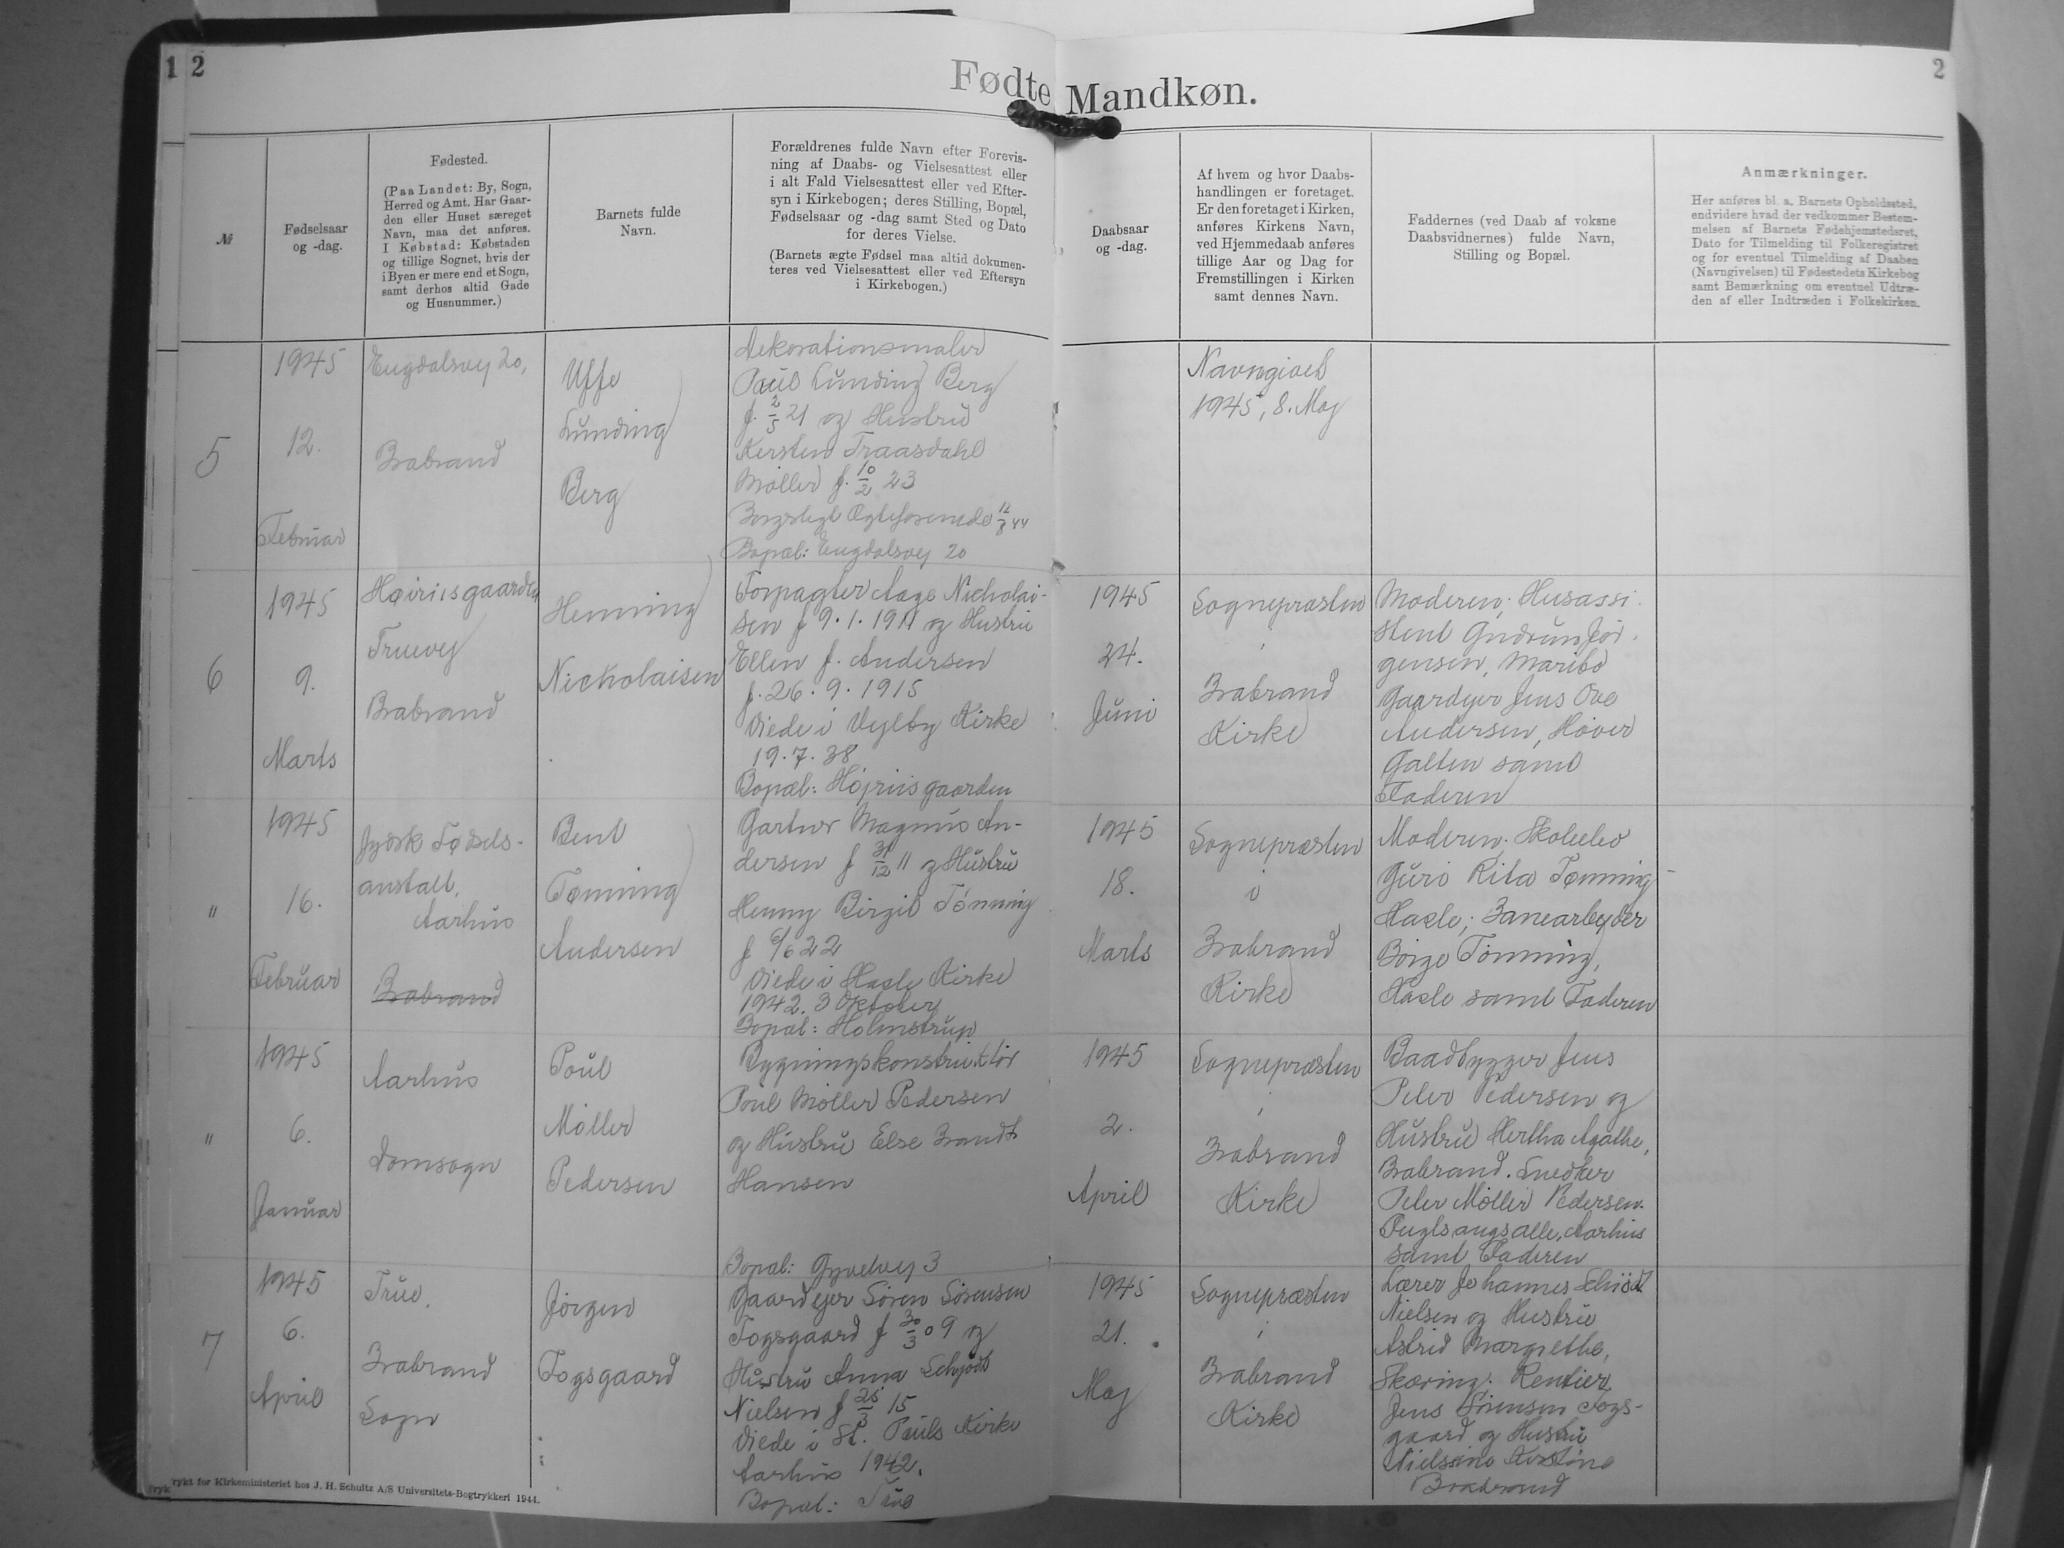 1 2
2
Fødte Mandkøn.
№
Fødselsaar
og -dag.
Fødested.
(Paa Landet: By, Sogn,
Herred og Amt. Har Gaar-
den eller Huset særeget
Navn, maa det anføres.
I Købstad: Købstaden
og tillige Sognet, hvis der
i Byen er mere end et Sogn,
samt derhos altid Gade
og Husnummer.)
Barnets fulde
Navn.
Forældrenes fulde Navn efter Forevis-
ning af Daabs- og Vielsesattest eller
i alt Fald Vielsesattest eller ved Efter-
syn i Kirkebogen; deres Stilling, Bopæl,
Fødselsaar og -dag samt Sted og Dato
for deres Vielse.
(Barnets ægte Fødsel maa altid dokumen-
teres ved Vielsesattest eller ved Eftersyn
i Kirkebogen.)
Daabsaar
og -dag.
Af hvem og hvor Daabs-
handlingen er foretaget.
Er den foretaget i Kirken,
anføres Kirkens Navn,
ved Hjemmedaab anføres
tillige Aar og Dag for
Fremstillingen i Kirken
samt dennes Navn.
Faddernes (ved Daab af voksne
Daabsvidnernes) fulde Navn,
Stilling og Bopæl.
Anmærkninger.
Her anføres bl. a. Barnets Opholdssted,
endvidere hvad der vedkommer Bestem-
melsen af Barnets Fødehjemstedsret,
Dato for Tilmelding til Folkeregistret
og for eventuel Tilmelding af Daaben
(Navngivelsen) til Fødestedets Kirkebog
samt Bemærkning om eventuel Udtræ-
den af eller Indtræden i Folkekirken.
5
1945
12.
Februar
Engdalsvej 20,
Brabrand
Uffe
Lunding
Berg
Dekorationsmaler
Poul Lunding Berg
f. 2/5 21 og Hustru
Kersten Traasdahl
Møller f. 10/2 23
Borgerligt Ægteforenede 12/8 44
Bopæl: Engdalsvej 20
Navngivet
1945, 8. Maj
6
1945
9.
Marts
Højriisgaarden
Truevej
Brabrand
Henning
Nickolaisen
Forpagter Aage Nicholai-
sen f 9.1.1911 og Hustru
Ellen f. Andersen
f. 26.9.1915
Viede i Vejlby Kirke
19.7.38
Bopæl: Højriisgaarden
1945
24.
Juni
Sognepræsten
i
Brabrand
Kirke
Moderen; Husassi-
stent Gudrun Jør-
gensen, Maribo
Gaardejer Jens Ove
Andersen, Høver
Galten samt
Faderen
"
1945
16.
Februar
Jydsk Fødsels-
anstalt,
Aarhus
Brabrand
Bent
Tønning
Andersen
Gartner Magnus An-
dersen f 31/12 11 og Hustru
Henny Birgit Tønning
f 6/6 22
Viede i Hasle Kirke
1942. 3 Oktober
Bopæl: Holmstrup
1945
18.
Marts
Sognepræsten
i
Brabrand
Kirke
Moderen; Skoleelev
Guri Rita Tønning
Hasle; Banearbejder
Børge Tønning,
Hasle samt Faderen
"
1945
6.
Januar
Aarhus
Domsogn
Poul
Møller
Pedersen
Bygningskonstruktør
Poul Møller Pedersen
og Hustru Else Brandt
Hansen
Bopæl: Gyvelvej 3
1945
2.
April
Sognepræsten
i
Brabrand
Kirke
Baadbygger Jens
Peter Pedersen og
Hustru Hertha Agathe,
Brabrand. Snedker
Peter Møller Pedersen.
Fuglsangsalle, Aarhus
samt Faderen
7
1945
6.
April
True.
Brabrand
Sogn
Jørgen
Fogsgaard
Gaardejer Søren Sørensen
Fogsgaard f 30/3 09 og
Hustru Anna Schjødt
Nielsen f 25/3 15
Viede i St. Pauls Kirke
Aarhus 1942.
Bopæl: True
1945
21.
Maj
Sognepræsten
i
Brabrand
Kirke
Lærer Johannes Schiødt
Nielsen og Hustru
Astrid Margrethe,
Skæring. Rentier
Jens Sørensen Fogs-
gaard og Hustru
Nielsine Kirstine
Brabrand
Trykt for Kirkeministeriet hos J. H. Schultz A/S Universitets-Bogtrykkeri 1944.